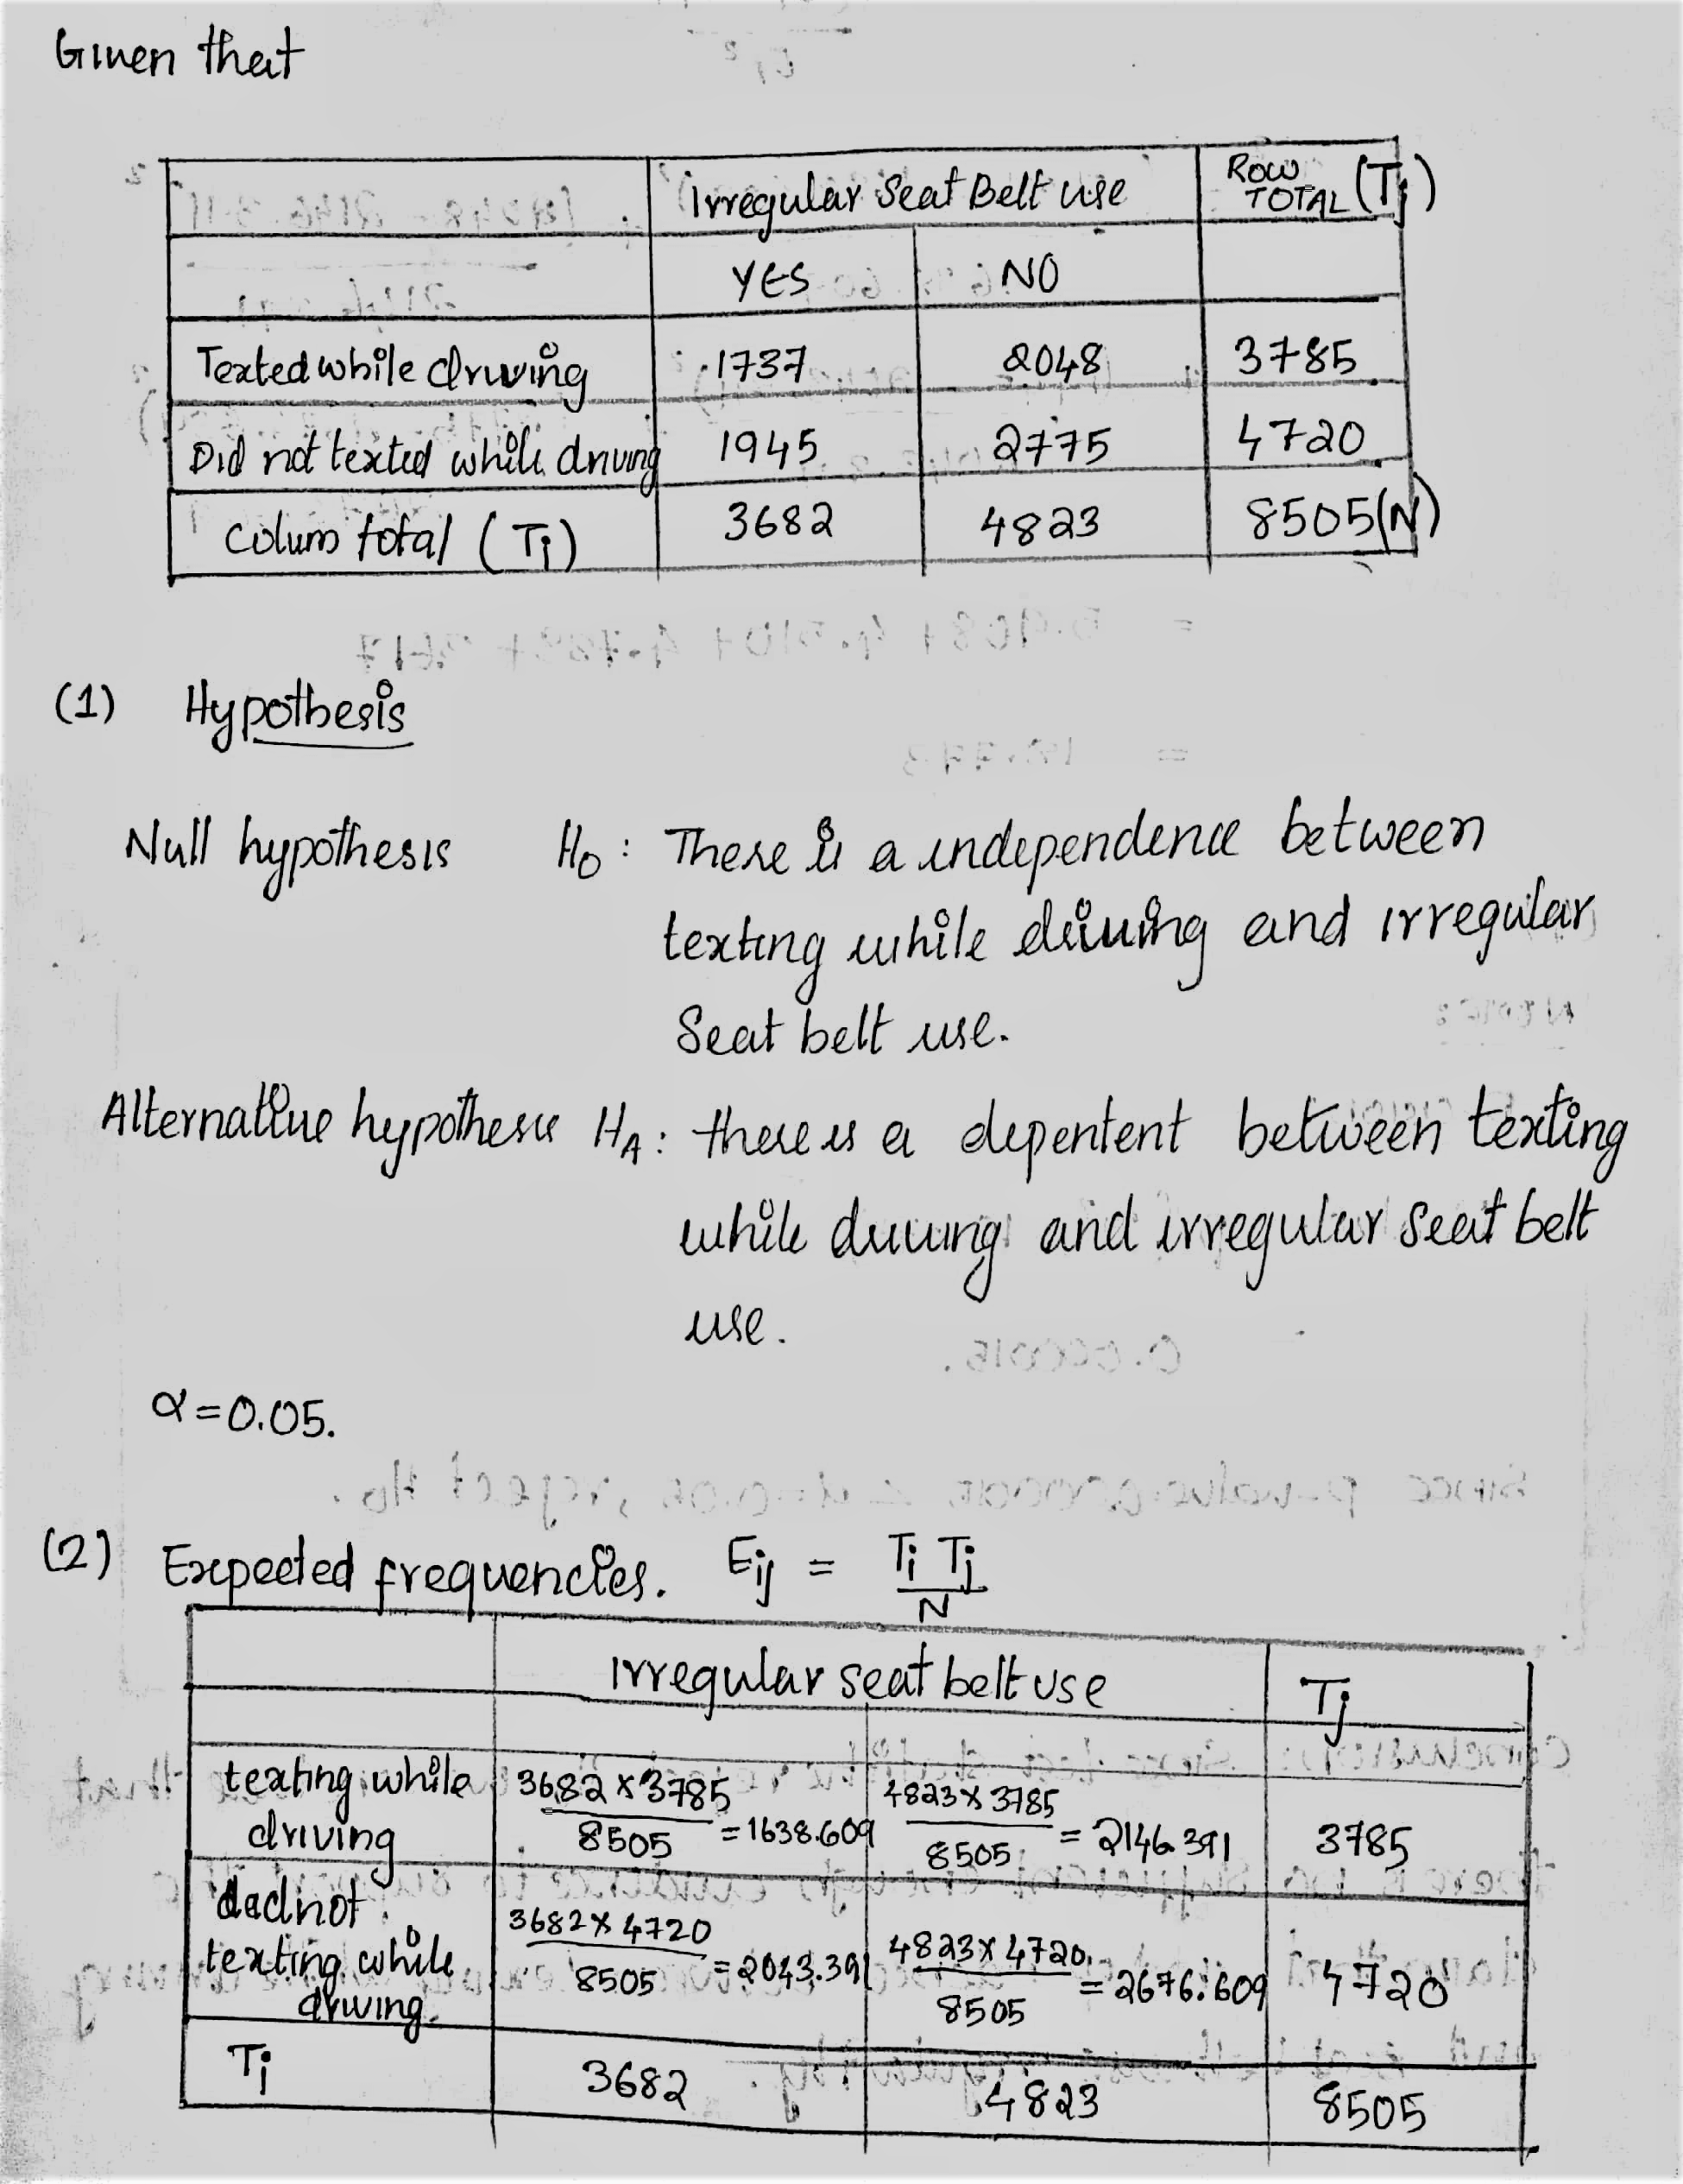 Given that
Irregular Seat Belt use ROW TOTAL (Tj)
YES NO
Texted while driving 1737 2048 3785
Did not texted while driving 1945 2775 4720
Colum total (Ti) 3682 4823 8505(N)
(1) Hypothesis
Null hypothesis H0 : There is a independence between
texting while driving and irregular
Seat belt use.
Alternative hypothesis HA : there is a depentent between texting
while driving and irregular seat belt
use.
α=0.05.
(2) Expected frequencies. Eij = Ti Tj / N
irregular seat belt use Tj
texting while driving 3682 x 3785 / 8505 = 1638.609 4823 x 3785 / 8505 = 2146.391 3785
dadnot texting while driving. 3682 x 4720 / 8505 = 2043.391 4823 x 4720 / 8505 = 2676.609 4720
Ti 3682 4823 8505